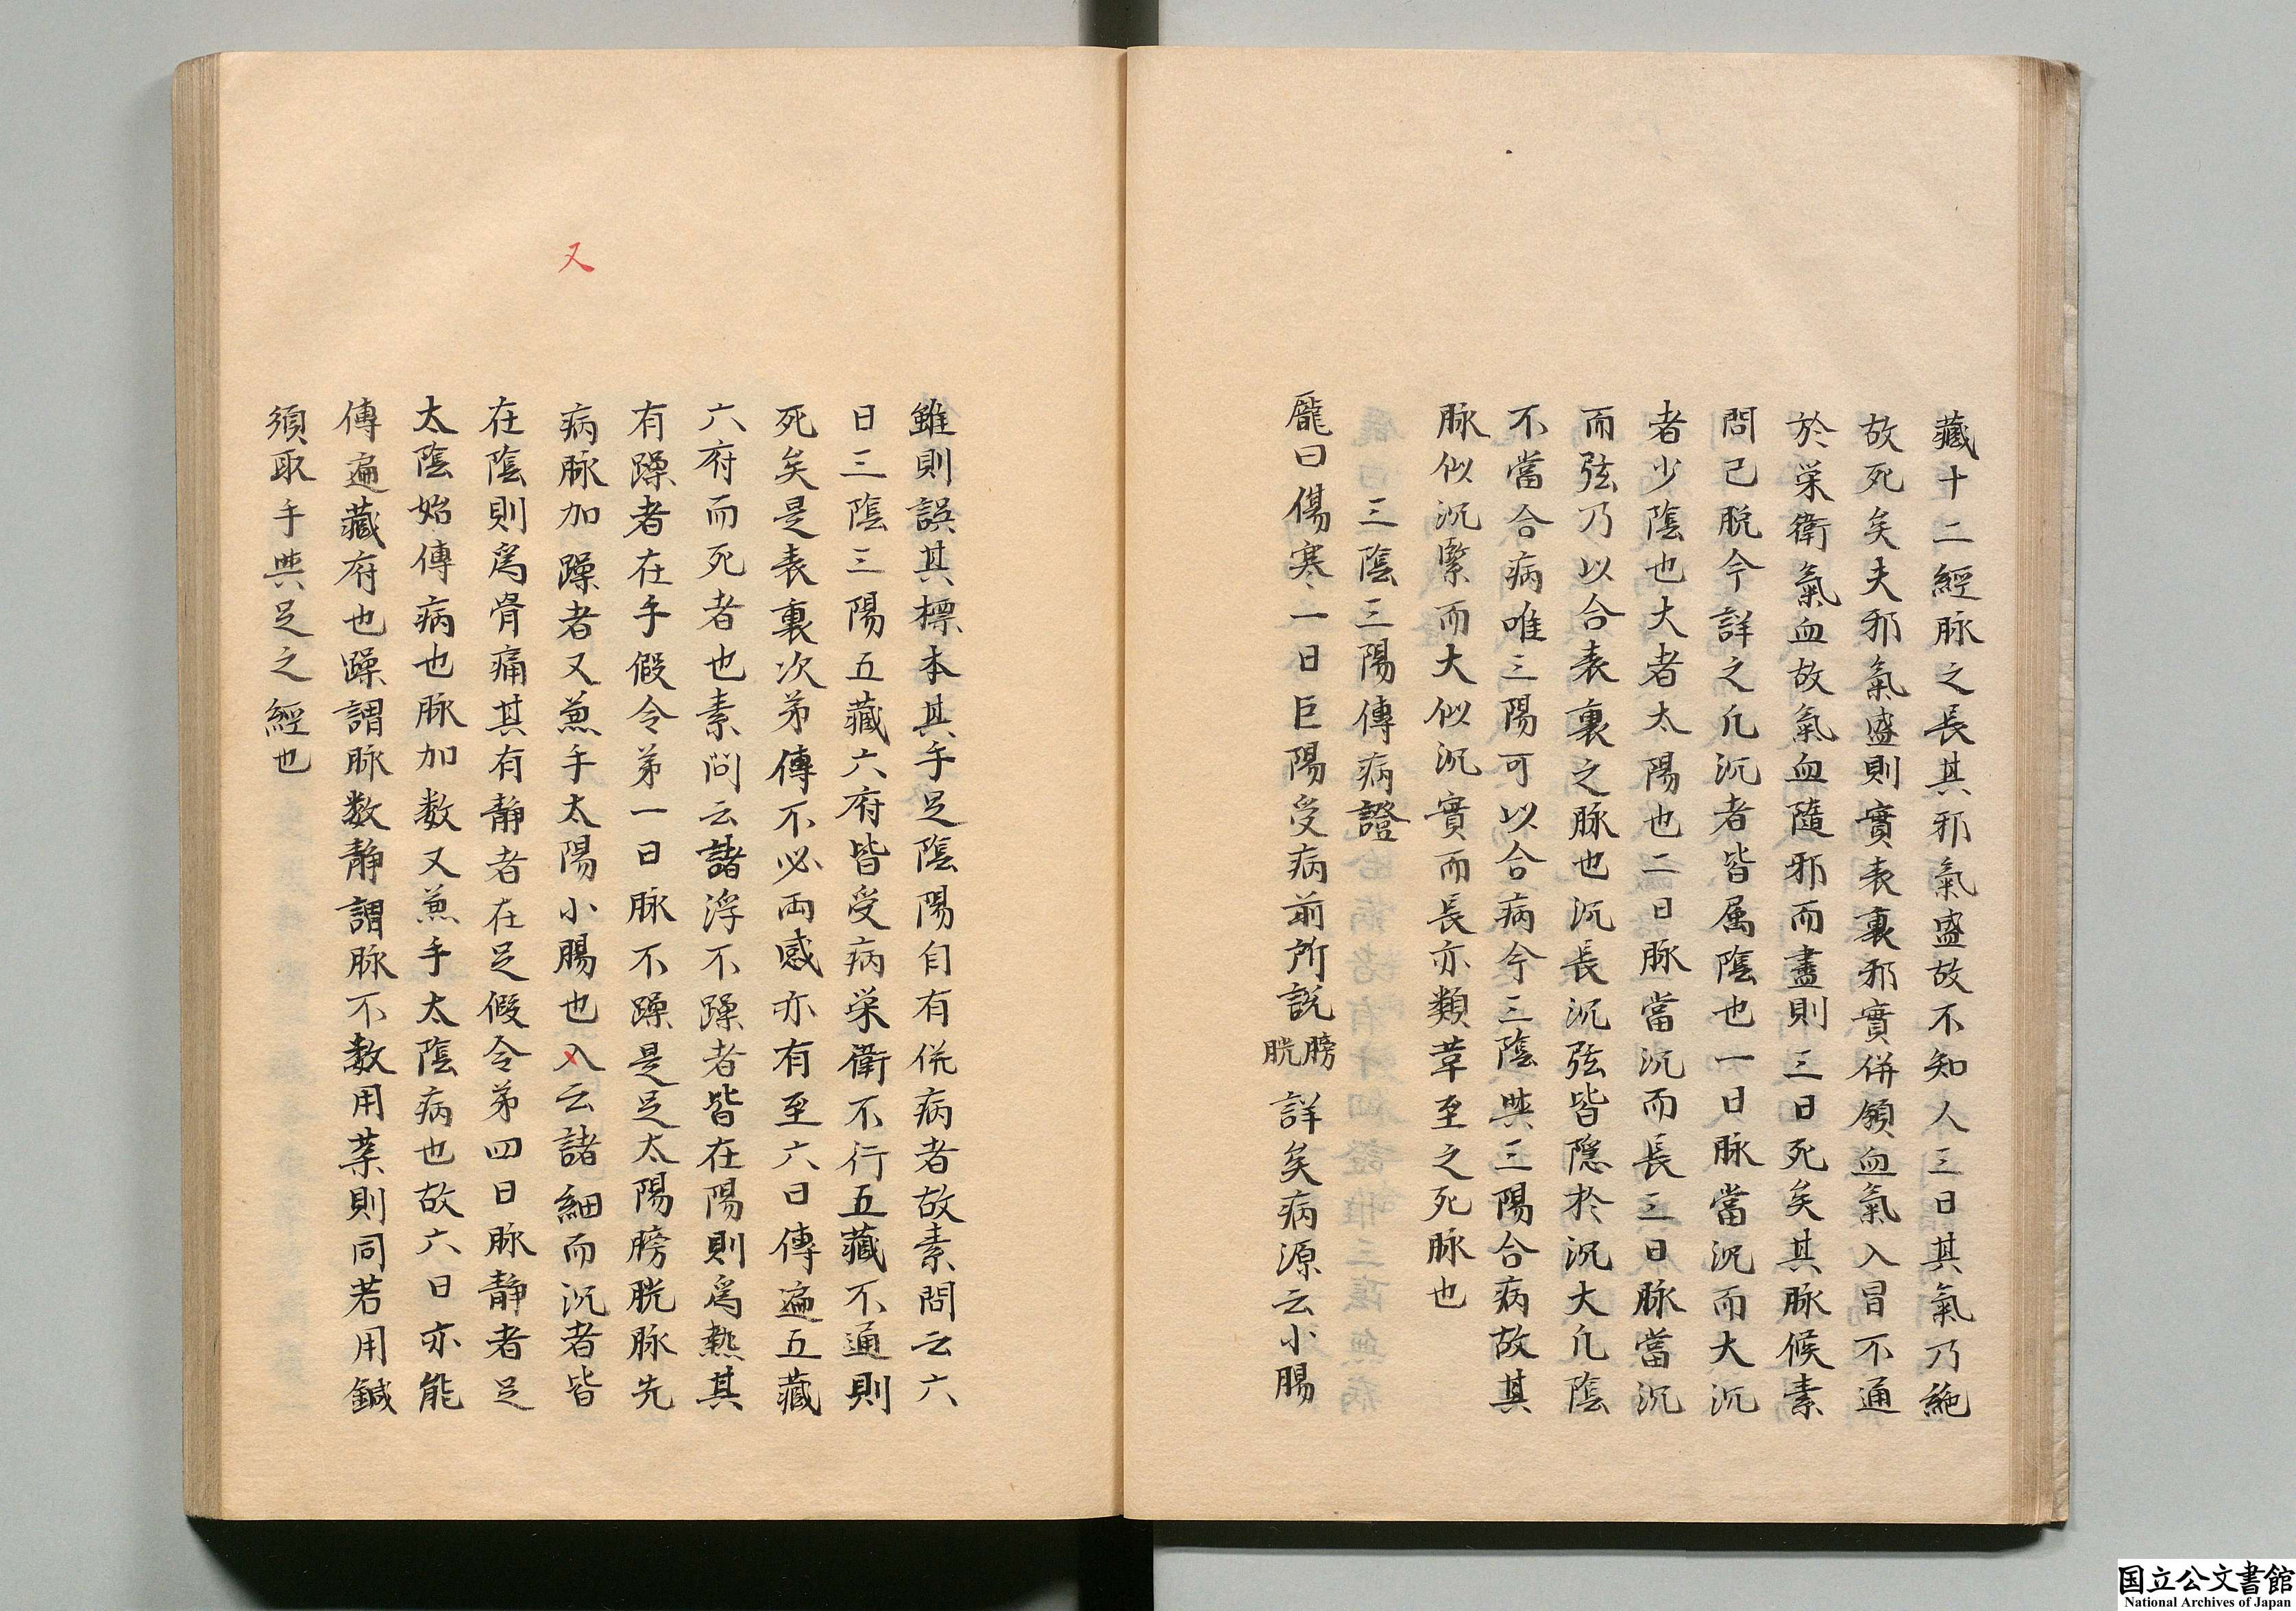 藏十二經脉之長其邪氣盛故不知人三日其氣乃絶
故死矣夫邪氣盛則實表裏邪實併領血氣入冒不通
於栄衛氣血故氣血隨邪而盡則三日死矣其脉候素
問已脱今詳之凢沉者皆属陰也一日脉當沉而大沉
者少陰也大者太陽也二日脉當沉而長三日脉當沉
而弦乃以合表裏之脉也沉長沉弦皆隱於沉大凢陰
不當合病唯三陽可以合病今三陰與三陽合病故其
脉似沉緊而大似沉實而長亦類草至之死脉也
三陰三陽傳病證
龐曰傷寒一日巨陽受病前所説膀胱詳矣病源云小腸
雖則誤其標本其手足陰陽自有併病者故素問云六
日三陰三陽五藏六府皆受病栄衛不行五藏不通則
死矣是表裏次第傳不必両感亦有至六日傳遍五藏
六府而死者也素問云諸浮不躁者皆在陽則為熱其
有躁者在手假令第一日脉不躁是足太陽膀胱脉先
病脉加躁者又兼手太陽小腸也入云諸細而沉者皆
又
在陰則為骨痛其有静者在足假令第四日脉静者足
太陰始傳病也脉加数又兼手太陰病也故六日亦能
傳遍藏府也躁謂脉数静謂脉不数用薬則同若用鍼
須取手與足之經也
国立公文書館
National Archives of Japan